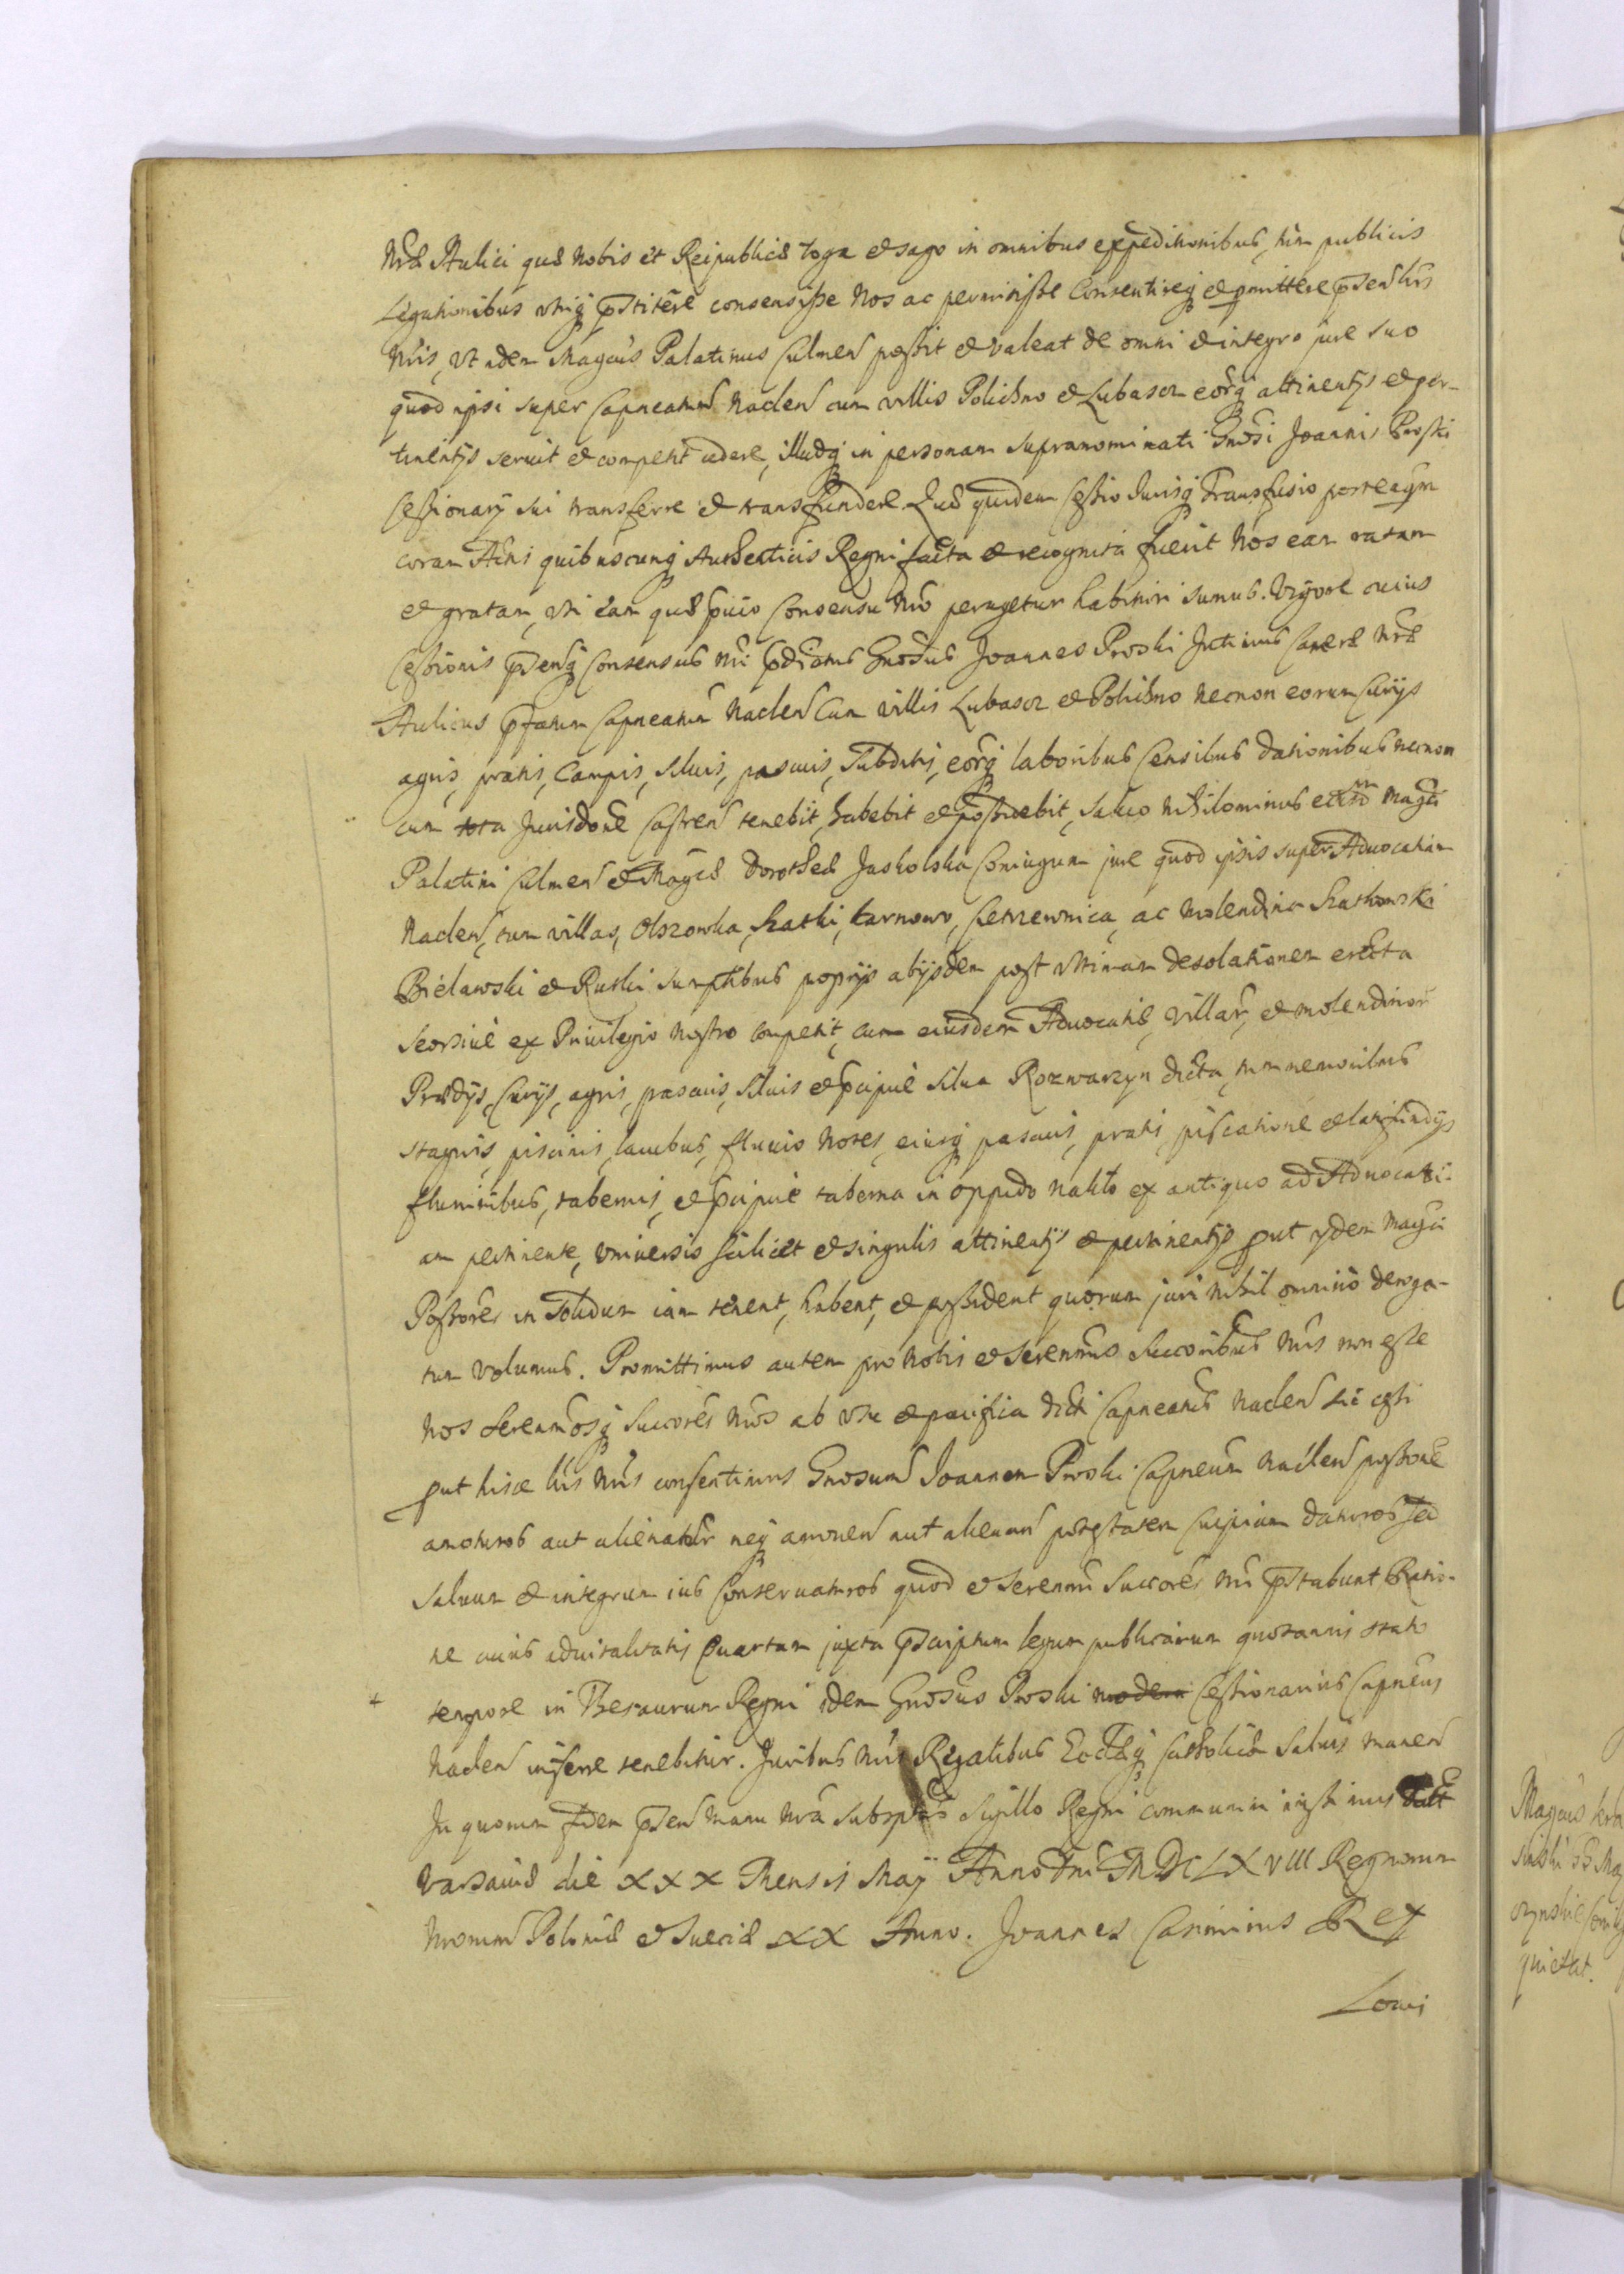 Nrae Aulici quae nobis et Reipublicae toga et sago in omnibus expeditionibus, tum publicis
Legationibus utriq̃ p̃stitere consensisse Nos ac permisisse Consentireq̃ et p̱mittere p̃sen̄ lris
Nris, Ut idem Magcus Palatinus Culmen̄ possit et valeat de omni et integro jure suo
quod ipsi super Capneatum Naclen̄ cum villis Polichno et Lubascz eorq̃ attinentijs et per-
tinentijs seruit et competit cedere, illudq̃ in personam supranominati Gnosi Joannis Proski
Cessionarij sui transferre et transfundere. Quae quidem Cessio Jurisq̃ Transfusio posteaq̃m
coram Actis quibuscunq̃ Authenticis Regni facta et recognita fuerit Nos eam ratam
et gratam, uti eam quae p̃uio Consensu Nro peragetur habituri sumus. Vigore cuius
Cessionis p̃senq̃ Consensus Nri p̃dictus Gnosus Joannes Proski Intimus Camerae Nrae
Aulicus p̃fatum Capneatum Naclen̄ Cum villis Lubascz et Polichno necnon eorum Curijs
agris, pratis, Campis, siluis, pascuis, Subditis, eorq̃ laboribus Censibus dationibus necnon
cum tota Jurisdone Castren̄ tenebit, habebit et possidebit, saluo nihilominus eorundem Magci
Palatini Culmen̄ et Magcae Dorotheae Jaskolska Coniugum jure quod ipsis super Aduocatiam
Naclen̄, tum villas, Olszowka, Szatki, Karnowo, Chrzewnica, ac Molendina Szatkowski
Bielawski et Rutki sumptibus proprijs abijsdem post ultimam desolationem erecta
seorsiue ex Priuilegio Nostro competit, cum eiusdem Aduocatiae, villar̃, et molendinor̃
Praedijs, Curijs, agris, pascuis, siluis et p̃cipue silua Rozwarzyn dicta, tum nemoribus
stagnis, piscinis, lacubus, fluuio Notes, eiusq̃ pascuis, pratis, piscatione et latifundijs
fluminibus, tabernis, et p̃cipue taberna in oppido Nakło ex antiquo ad Aduocati-
am pertinente, vniuersis scilicet et singulis attinentijs et pertinentijs prout ijdem Magci
Possores in solidum iam tenent, habent, et possident quorum juri nihil omnino deroga-
tum volumus. Promittimus autem pro Nobis et Serenmis Succoribus Nris non esse
Nos Serenmosq̃ Succores Nros ab usu et pacifica dicti Capneatus Naclen̄ sic cessi
prout hisce lris Nris consentimus Gnosum Joannem Proski Capneum Naclen̄ possone
amoturos aut alienatur̃ neq̃ amouen̄ aut alienan̄ potestatem Cuipiam daturos sed
saluum et integrum ius Conseruaturos quod et Serenmi Succores Nri p̃stabunt Ratio-
ne cuius aduitalitatis Quartam juxta p̃scriptum legum publicarum quotannis stato
tempore in Thesaurum Regni idem Gnosus Proski Cessionarius Capneus
Naclen̄ inferre tenebitur. Juribus Nris Regalibus Ecclaeq̃ Catholicae saluis manen̄
In quorum fidem p̃sen̄ manu Nra subsptas Sigillo Regni communiri iussimus Datt
Varsauiae die XXX Mensis Maij Anno Dni MDCLXVIII Regnorum
Nrorum Poloniae et Sueciae XX Anno. Joannes Casimirus Rex
Loci
Magcus
quietat.